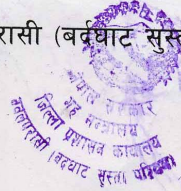 रासी (बर्दघाट सुस्त
नेपाल सरकार
गृह मन्त्रालय
जिल्ला प्रशासन कार्यालय
नवलपरासी (बर्दघाट सुस्ता पश्चिम)